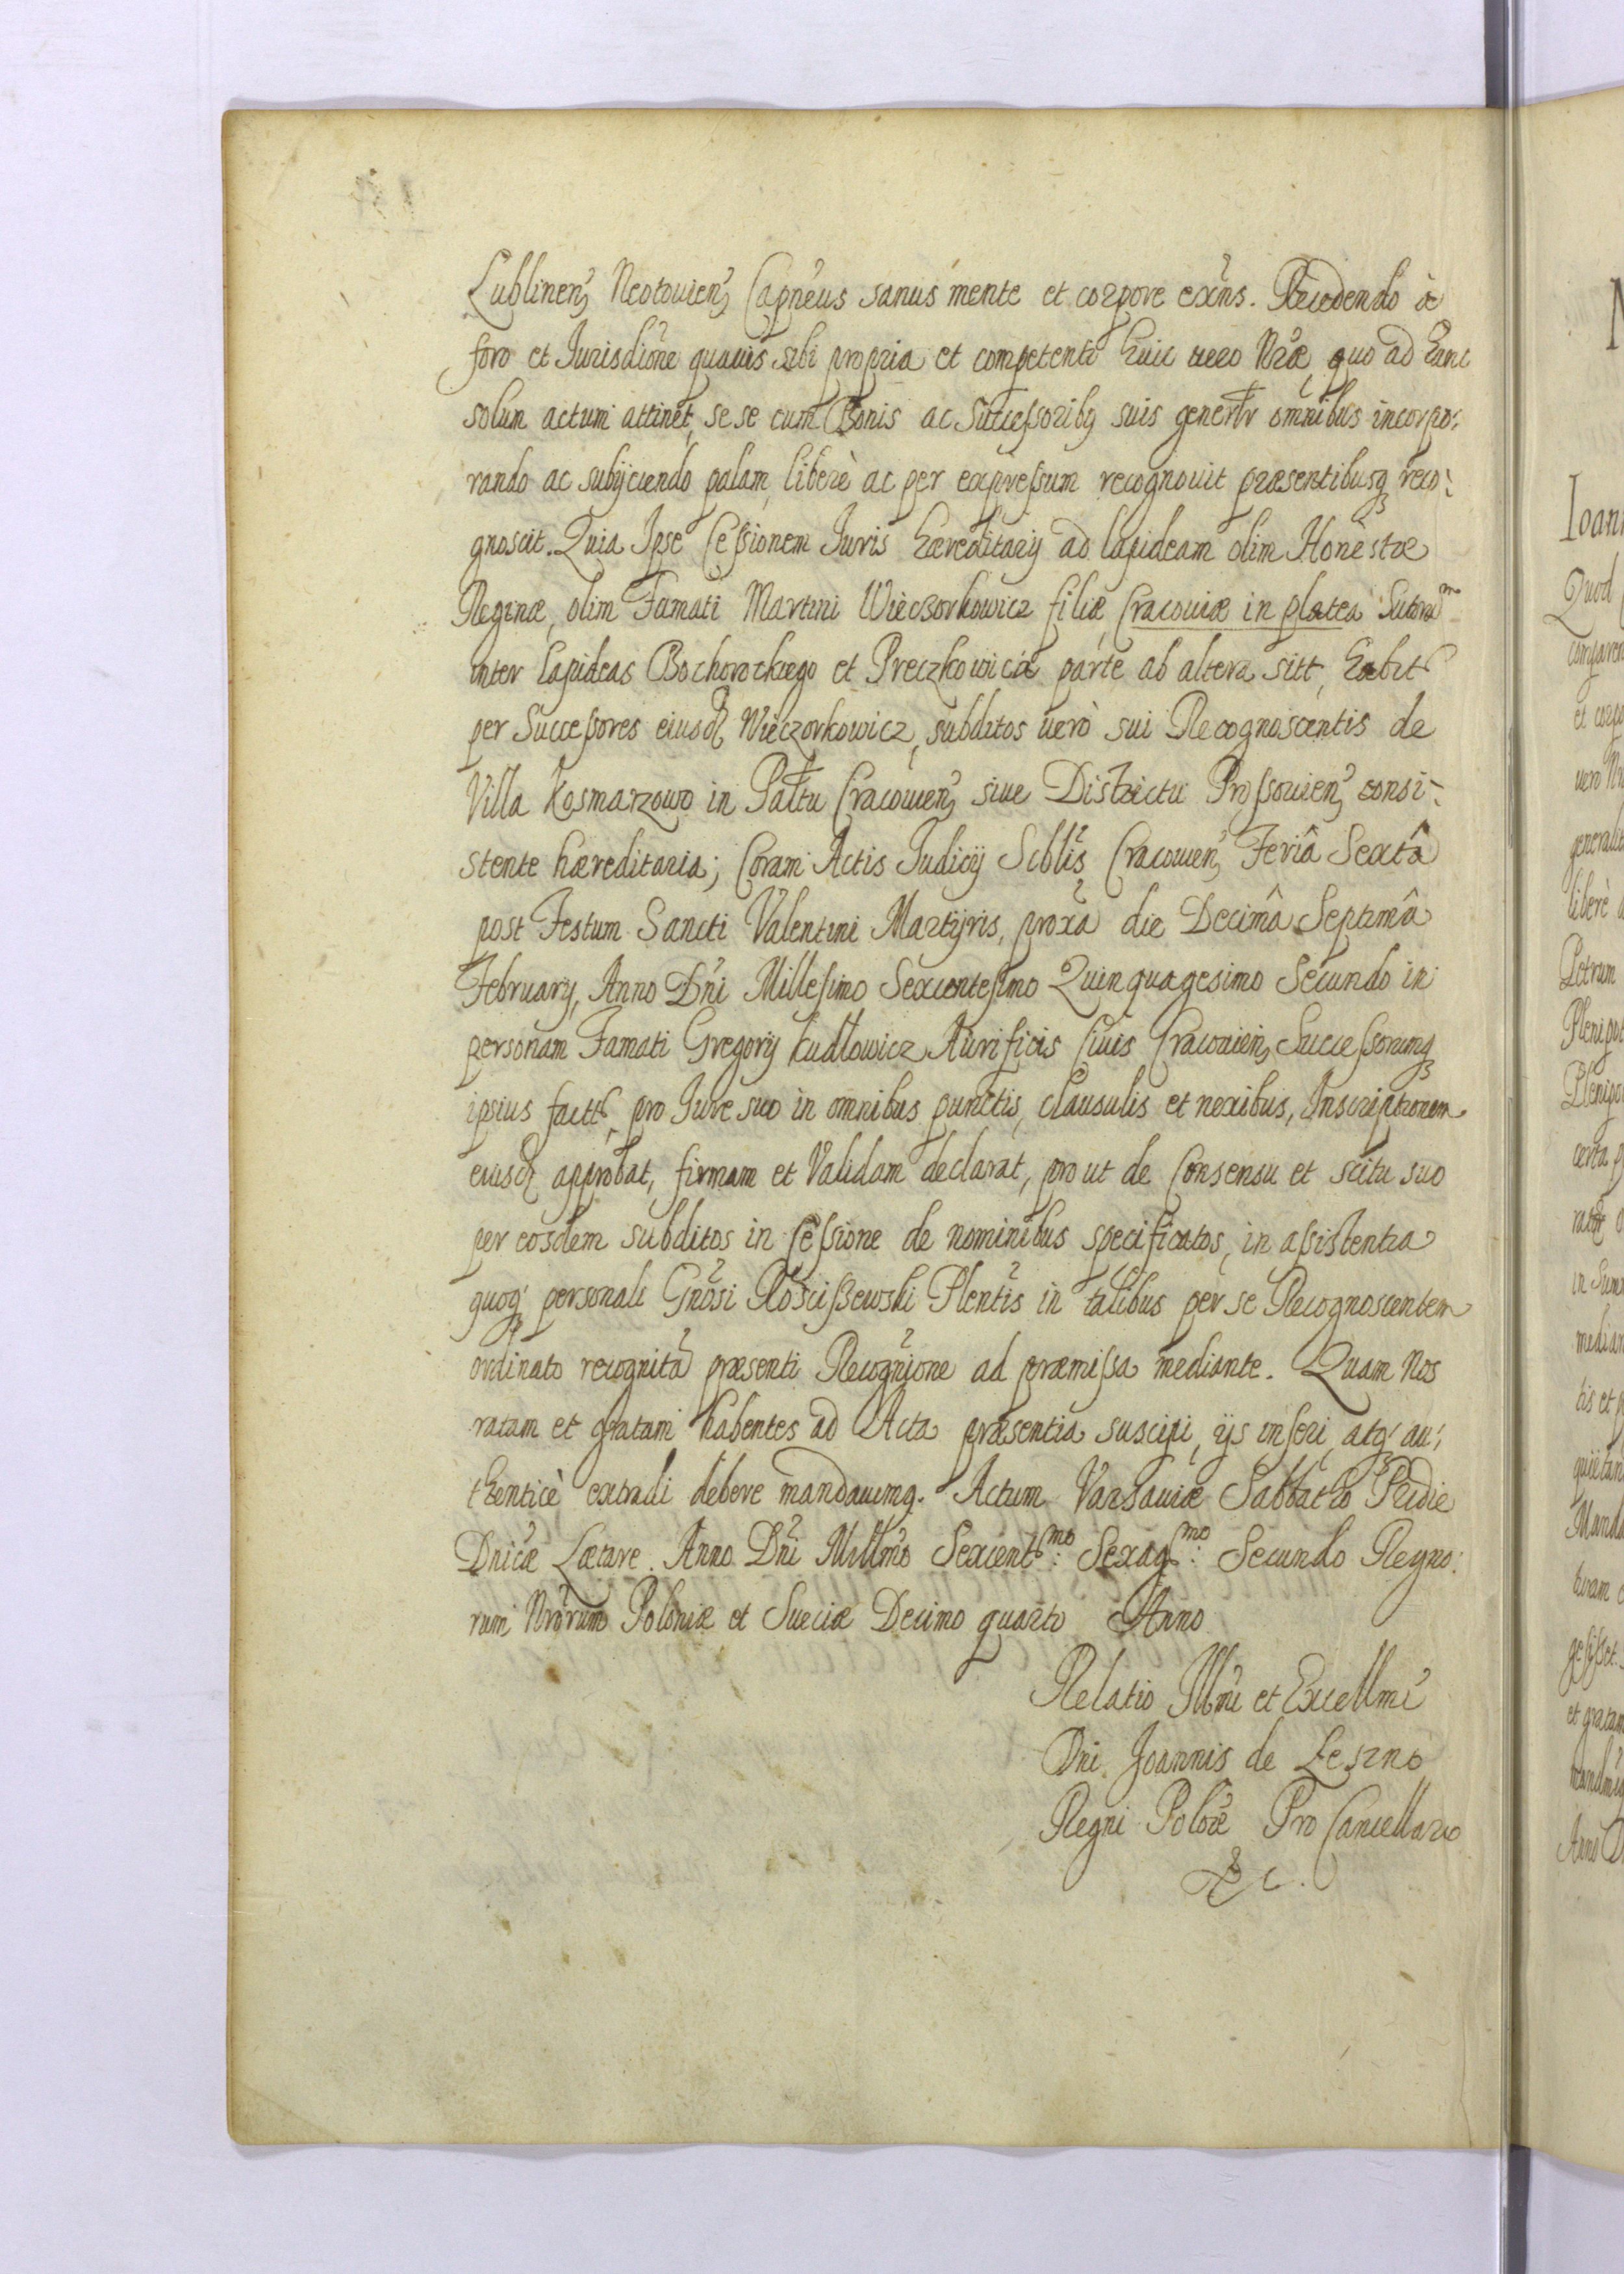 Lublinen, Neotovien, Capneus sanus mente et corpore exns. Recedendo à
foro et Jurisdione quavis sibi propria et competenti huic vero Nrae, quo ad hanc
solum actum attinet, se se cum Bonis ac Successoribq suis genertr omnibus incorpo:
rando ac subijciendo palam, liberè ac per expressum recognovit praesentibusq reco:
gnoscit. Quia Ipse Cessionem Juris haereditarij ad lapideam olim Honestae
Reginae, olim Famati Martini Wieczorkowicz filiae, Cracoviae in platea Sutora
inter lapideas Bochorockiego et Preczkowicia parte ab altera sitt, habit
per Successores eiusd Wieczorkowicz, subditos verò sui Recognoscentis de
Villa Kosmarzowo in Pałtu Cracovien, sive Districtu Prossovien, consi:
stente haereditaria; Coram Actis Judicij Scblis Cracovien, Feriâ Sextâ
post Festum Sancti Valentini Martijris, proxa die Decimâ Septimâ
February, Anno Dni Millesimo Sexcentesimo Quinquagesimo Secundo in
personam Famati Gregorij Kudłowicz Aurificis Civis Cracovien, Successorumq
ipsius factt, pro Jure suo in omnibus punctis, clausulis et nexibus, Inscriptionem
eiusd approbat, firmam et Validam declarat, pro ut de Consensu et scitu suo
per eosdem subditos in Cessione de nominibus specificatos, in assistentia
quoq personali Gnosi Rosciszewski Plentis in talibus per se Recognoscentem
ordinato recognita praesenti Recognione ad praemissa mediante. Quam Nos
ratam et gratam habentes ad Acta praesentia suscipi, ijs inseri, atq au:
thenticè extradi debere mandavimq. Actum Varsaviae Sabbatho Pridie
Dnicae Laetare. Anno Dni Millmo Sexcent mo: Sexag mo: Secundo Regno:
rum Nrorum Poloniae et Sueciae Decimo quarto Anno
Relatio Illmi et Excellmi
Dni Joannis de Leszno
Regni Polae Pro Cancellario
&c.